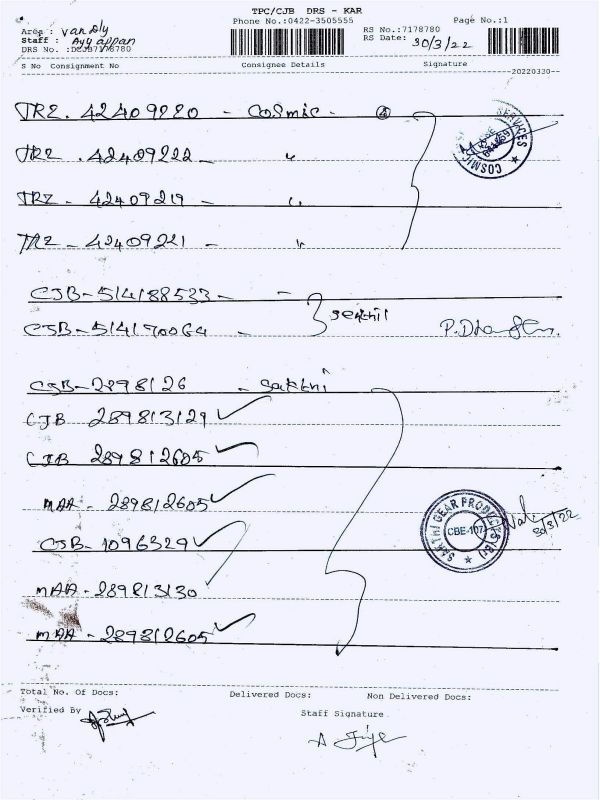 TPC/CJB DRS - KAR
Phone No.:0422-3505555 Page No.:1
Area :
Staff : Ayyappan
DRS No. :DCJB7178780
RS No.:7178780
RS Date: 30/3/22
S No Consignment No Consignee Details Signature
20220330
TRZ. 42409220 - Cosmic - 4
TRZ. 42409222 - "
TRZ - 42409219 - "
TRZ - 42409221 - "
COSMIC SERVICES
CJB-514188533 - -
CJB-514170064 -
CJB-2898126 - Sakthi
CJB 289813129
CJB 289812605
MAA - 289812605
CJB-1096329
SAKTHI GEAR PRODUCTS
CBE-107
30/3/22
MAA - 289813130
MAA - 289812605
Total No. Of Docs: Delivered Docs: Non Delivered Docs:
Verified By Staff Signature